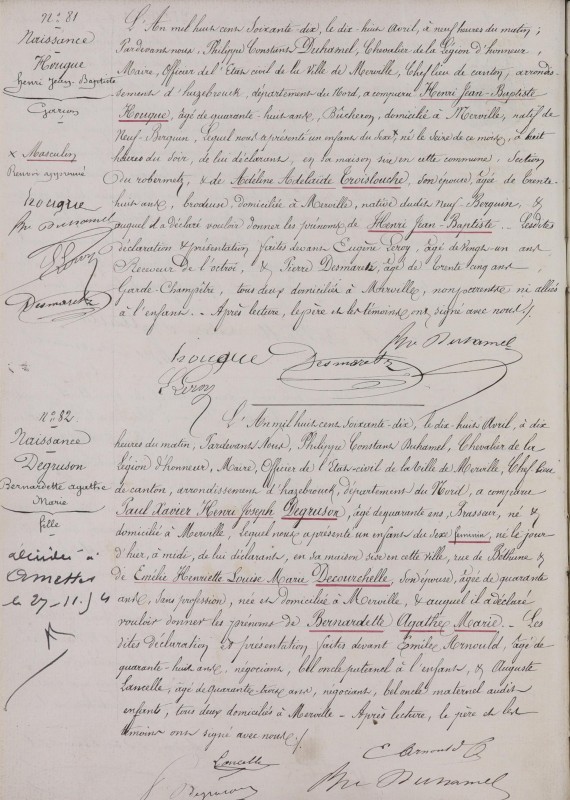 N° 81
Naissance
Hougue
Henri Jean-Baptiste
Garçon
x Masculin
Renvoi approuvé
hougue
Duhamel
Leroy
Desmarett
L'An mil huit cent Soixante-dix, le dix huit Avril, à neuf heures du matin,
Pardevant nous, Philippe Constant Duhamel, Chevalier de la Légion d'honneur,
Maire, Officier de l'Etat civil de la Ville de Merville, Chef lieu de canton, arrondis-
sement d'hazebrouck, département du Nord, a comparu Henri Jean-Baptiste
Hougue, âgé de quarante-huit ans, Bûcheron, domicilié à Merville, natif de
Neuf-Berquin, Lequel nous a présenté un enfant du Sexe x né le Seize de ce mois, à huit
heures du Soir, de lui déclarant, en sa maison sise en cette commune, Section
du robermetz, & de Adéline Adélaïde Croistouche, Son épouse, âgée de trente-
huit ans, brodeuse, domiciliée à Merville, native dudit Neuf-Berquin, &
auquel il a déclaré vouloir donner les prénoms de Henri Jean-Baptiste. Lesdites
déclaration & présentation faites devant Eugène Leroy, âgé de vingt-un ans,
Receveur de l'octroi, & Pierre Desmarett, âgé de trente cinq ans,
Garde-Champêtre, tous deux domiciliés à Merville, non parents ni alliés
à l'enfant. - Après lecture, le père et les témoins ont signé avec nous./.
hougue
Desmarett
Duhamel
Leroy
N° 82
Naissance
Degruson
Bernardette agathe
Marie
fille
décédée à
Amettes
le 27-11-54
L'An mil huit cent Soixante-dix, le dix huit Avril, à dix
heures du matin, Pardevant Nous, Philippe Constant Duhamel, Chevalier de la
Légion d'honneur, Maire, Officier de l'Etat-civil de la Ville de Merville, Chef lieu
de canton, arrondissement d'hazebrouck, département du Nord, a comparu
Paul Xavier Henri Joseph Degruson, âgé de quarante ans, Brasseur, né &
domicilié à Merville, Lequel nous a présenté un enfant du Sexe féminin, né le jour
d'hier, à midi, de lui déclarant, en sa maison sise en cette ville, rue de Béthune &
de Emilie Henriette Louise Marie Decourchelle, Son épouse, âgée de quarante
ans, Sans profession, née et domiciliée à Merville, & auquel il a déclaré
vouloir donner les prénoms de Bernardette Agathe Marie. - Les
dites Déclaration et présentation faites devant Emile Arnould, âgé de
quarante-huit ans, négociant, bel oncle paternel à l'enfant, & Auguste
Lancelle, âgé de quarante-trois ans, négociant, bel oncle maternel audit
enfant, tous deux domiciliés à Merville - Après lecture, le père et les
témoins ont signé avec nous./.
Lancelle
E Arnould
Degruson
Duhamel